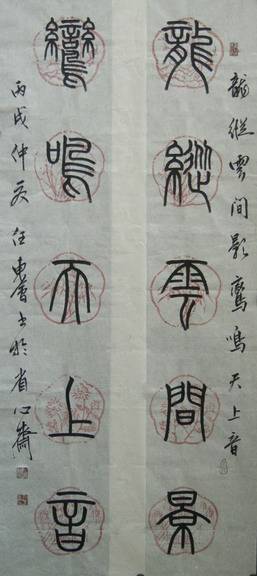 龍縱雲間影鸞鳴天上音
龍縱雲間景
鸞鳴天上音
丙戌仲夏書於省心齋